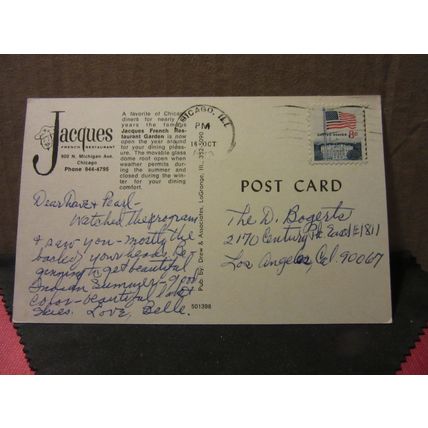 Jacques
FRENCH RESTAURANT
900 N. Michigan Ave.
Chicago
Phone 944-4795
A favorite of Chicago
diners for nearly
years the famous
Jacques French Res-
taurant Garden is now
open the year around
for your dining pleas-
ure. The movable glass
dome roof open when
weather permits dur-
ing the summer and
closed during the win-
ter for your dining
comfort.
CHICAGO, ILL
PM
OCT
8c
UNITED STATES
Pub. by: Drew & Associates, LaGrange, Ill.
501398
POST CARD
Dear Dave & Pearl-
Watched the program
& saw you - mostly the
back of your head. Be-
ginning to get beautiful
Indian Summer - good
color - beautiful
Skies. Love, Belle.
The D. Bogerts
2170 Century Pk. East #1811
Los Angeles Cal 90067